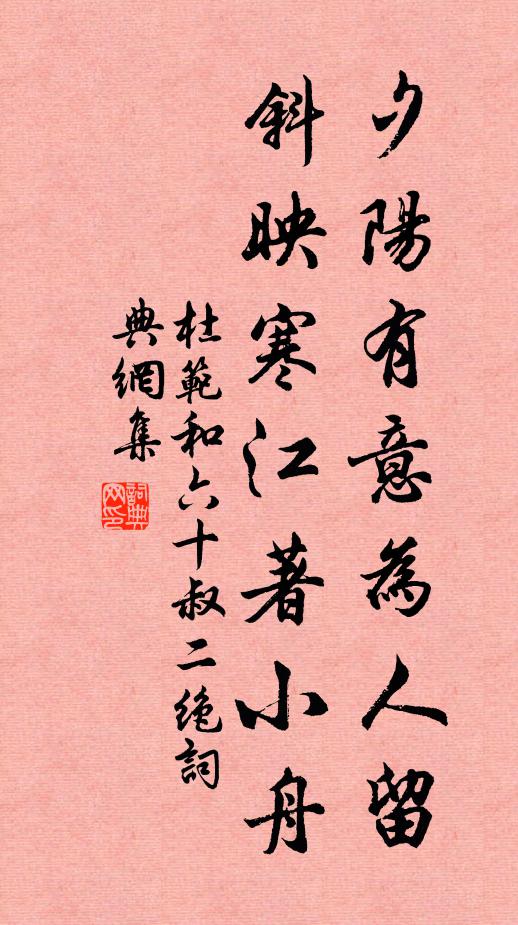 夕陽有意為人留
斜映寒江著小舟
杜範和六十叔二絶詞
典網集
詞典網印